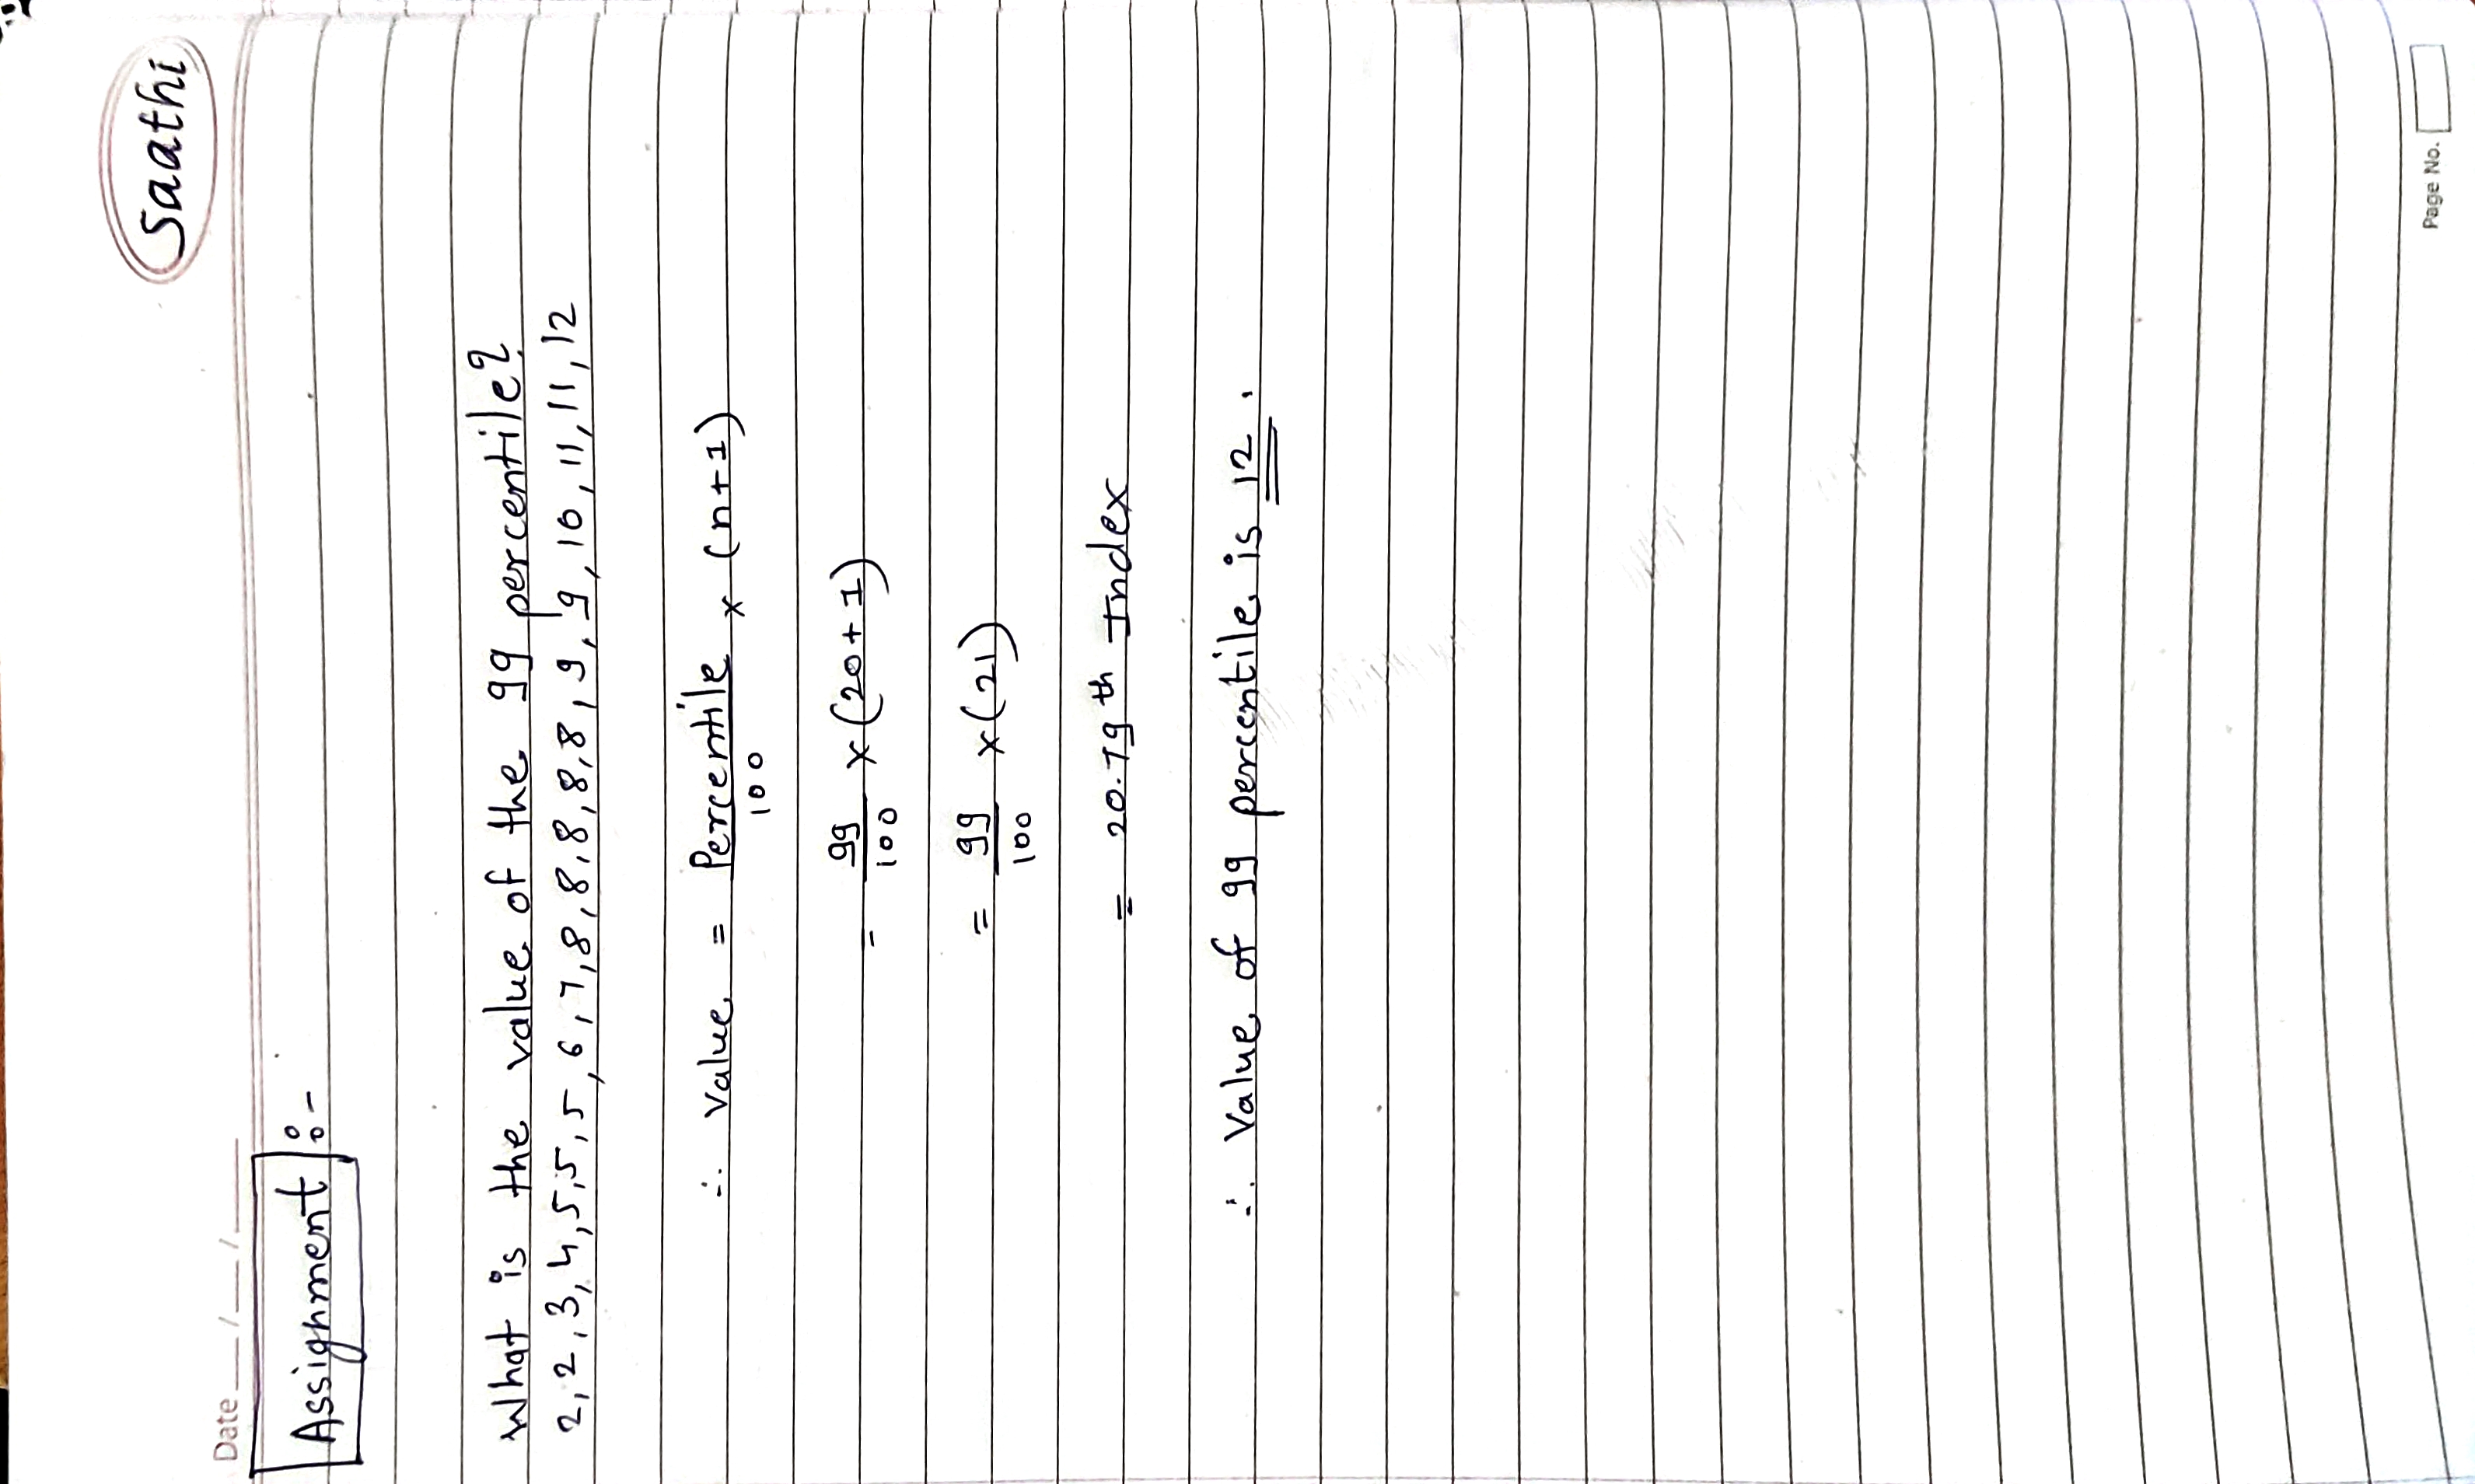 Saathi
Date ___/___/_____
Assignment :-
What is the value of the 99 percentile?
2, 2, 3, 4, 5, 5, 5, 6, 7, 8, 8, 8, 8, 8, 9, 9, 10, 11, 11, 12
∴ Value = Percentile/100 × (n+1)
= 99/100 × (20+1)
= 99/100 × (21)
= 20.79th Index
∴ Value of 99 percentile is 12.
Page No.